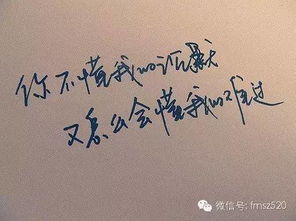 你不懂我的沉默
又怎么会懂我的难过
微信号: frnsz520